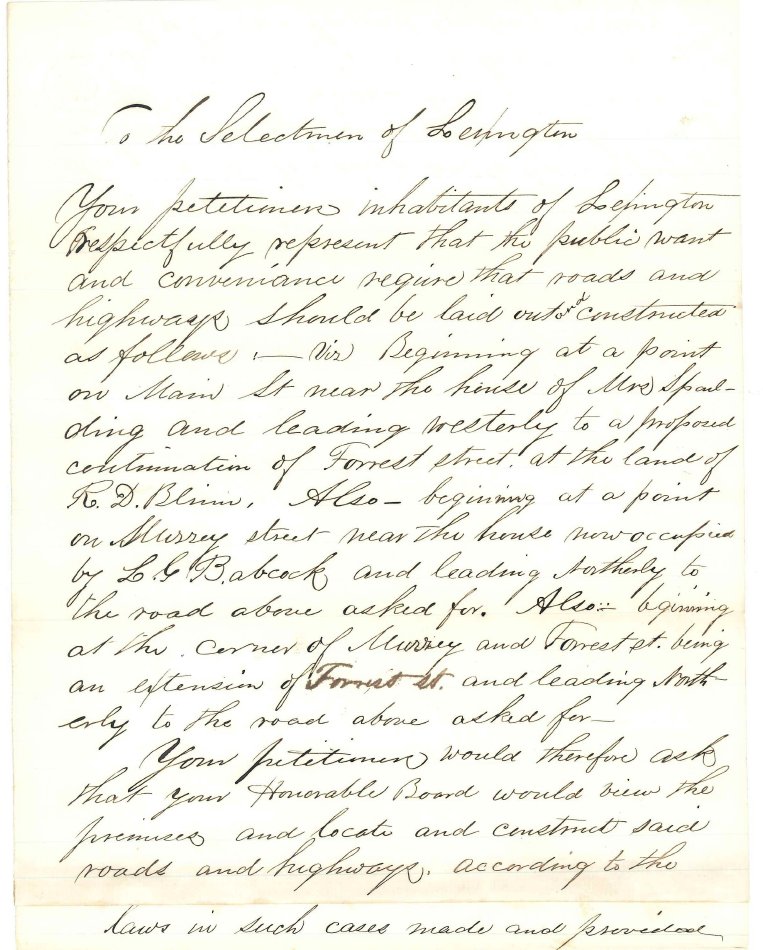 To the Selectmen of Lexington
Your petetioners inhabitants of Lexington
respectfully represent that the public want
and conveniance reqiure that roads and
highways should be laid out and constructed
as follows :— Viz Beginning at a point
on Main St near the house of Mrs Spaul-
ding and leading westerly to a proposed
continuation of Forrest street. at the land of
R. D. Blinn. Also — beginning at a point
on Muzzey street near the house now occupied
by L. G. Babcock and leading Northerly to
the road above asked for. Also:— bginning
at the corner of Muzzey and Forrest st. being
an extension of Forrest st. and leading North-
erly to the road above asked for—
Your petitioners would therefore ask
that your Honorable Board would view the
premises and locate and construct said
roads and highways, according to the
laws in such cases made and provided